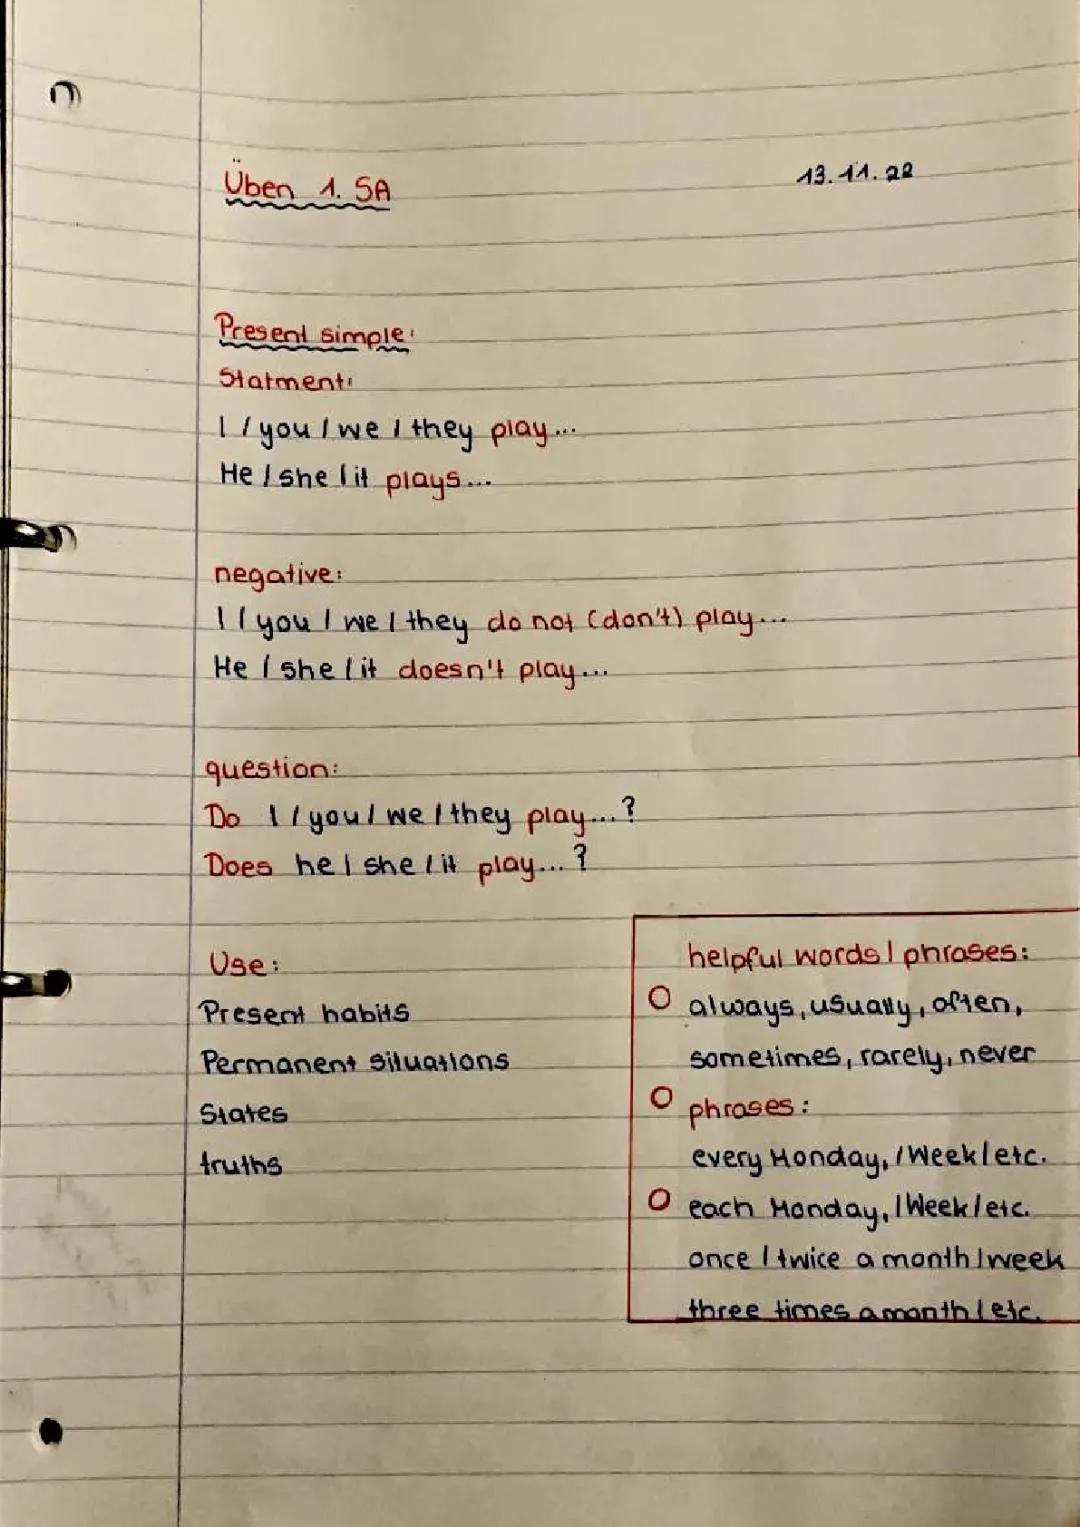 Üben 1. SA
13.11.22
Present simple:
Statment:
I / you / we / they play...
He / she / it plays...
negative:
I / you / we / they do not (don't) play...
He / she / it doesn't play...
question:
Do I / you / we / they play...?
Does he / she / it play...?
Use:
Present habits
Permanent situations
States
truths
helpful words / phrases:
always, usually, often,
sometimes, rarely, never
phrases:
every Monday, / Week / etc.
each Monday, / Week / etc.
once / twice a month / week
three times a month / etc.